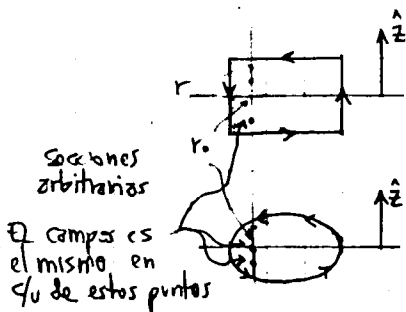 ẑ
r
r₀
secciones
arbitrarias
ẑ
El campo es
el mismo en
c/u de estos puntos